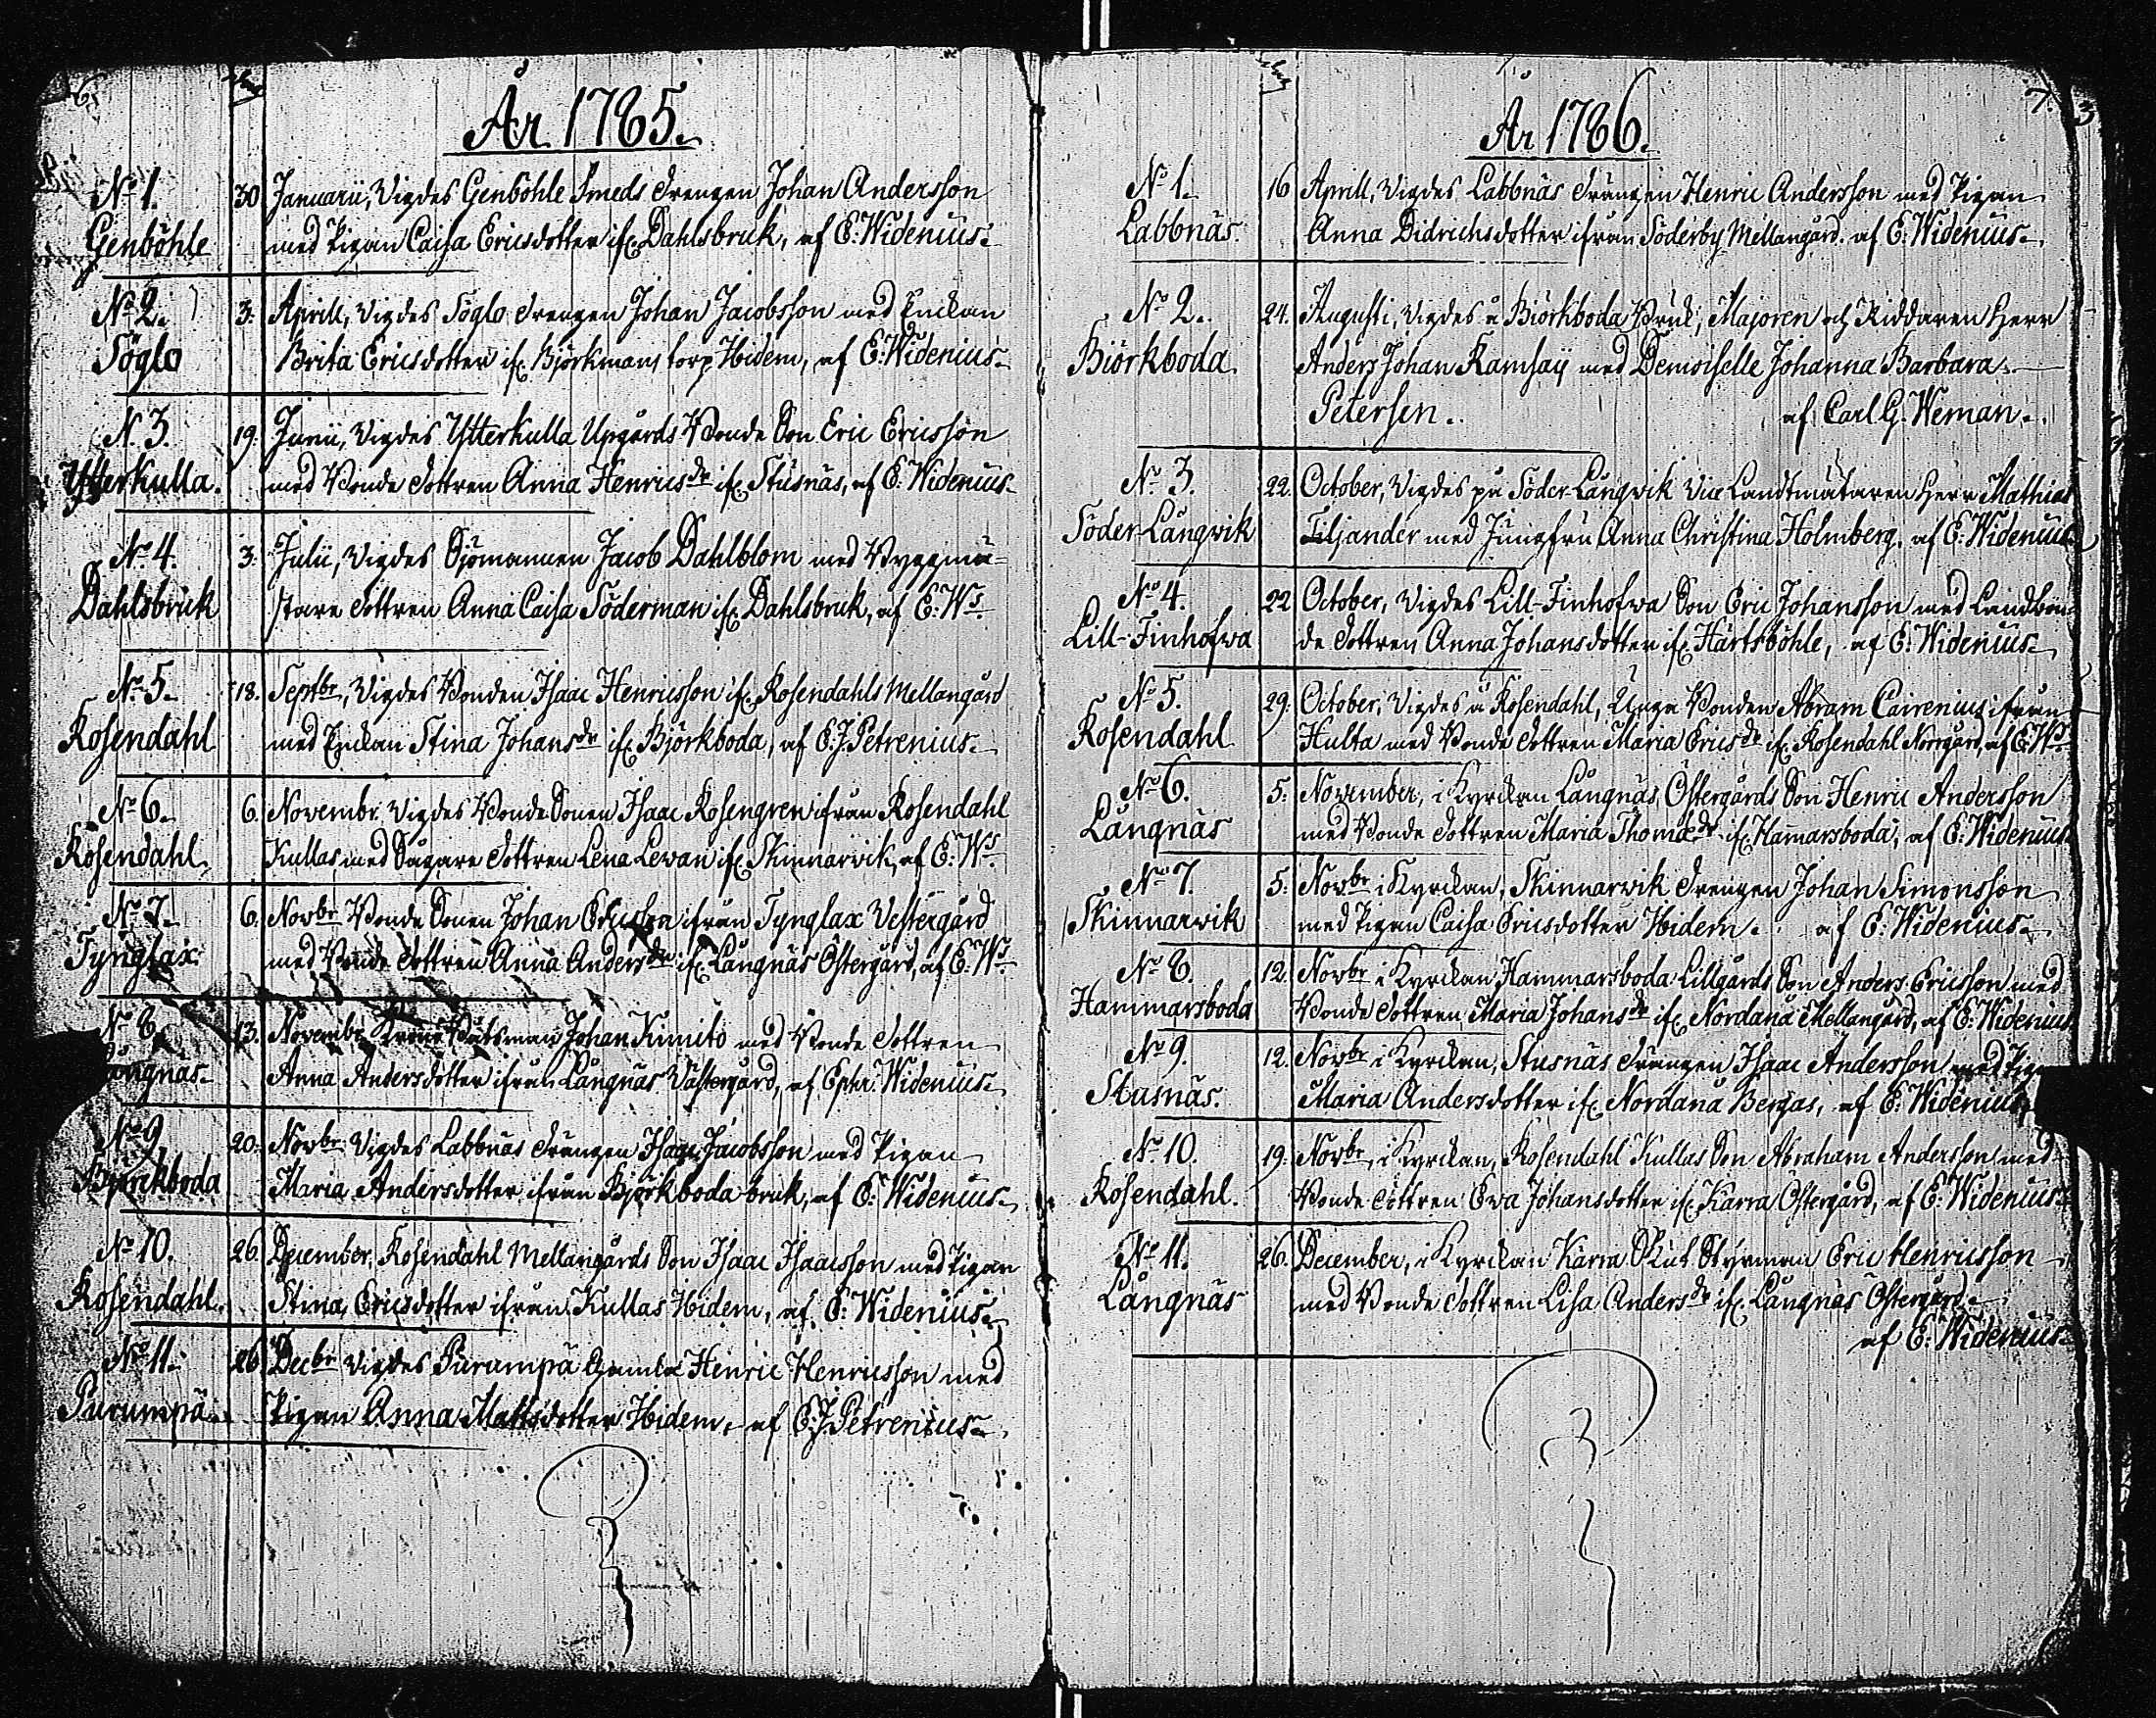 6.
År 1785.
No 1. Genböhle
30 Januarii, Vigdes Genböhle Smeds Drengen Johan Andersson
med Pigan Caisa Ericsdotter ifr. Dahlsbruk, af E: Widenius.
No 2. Söglo
3. Aprill, Vigdes Söglo Drengen Johan Jacobsson med Enckan
Brita Ericsdotter ifr. Björkmans torp Ibidem, af E: Widenius.
N. 3. Ytterkulla.
19. Junii, Vigdes Ytterkulla Upgårds Bonde Son Eric Ericsson
med Bonde Dottren Anna Henricsdr ifr. Stusnäs, af E: Widenius.
No 4. Dahlsbruk
3. Julii, Vigdes Sjömannen Jacob Dahlblom med Byggmä-
stare Dottren Anna Caisa Söderman ifr. Dahlsbruk, af E: Ws.
No 5. Rosendahl
18. Septbr, Vigdes Bonden Isaac Henricsson ifr. Rosendahls Mellangård
med Enckan Stina Johansdr ifr. Björkboda, af E.J. Petrenius.
No 6. Rosendahl
6. Novembr. Vigdes Bonde Sonen Isaac Rosengren ifrån Rosendahl
Kullas, med Sågare Dottren Lena Lewan ifr. Skinnarvik, af E: Ws.
No 7. Tynglax
6. Novbr Bonde Sonen Johan Ericsson ifrån Tynglax Vestergård
med Bonde Dottren Anna Andersdr ifr. Långnäs Östergård, af E: Ws.
No 8 Långnäs.
13. Novembr. Krono Båtsman Johan Kimito med Bonde Dottren
Anna Andersdotter ifrån Långnäs Västergård, af Ephr. Widenius.
No 9 Björckboda
20. Novbr Vigdes Labbnäs Drängen Isaac Jacobsson med Pigan
Maria Andersdotter ifrån Björkboda bruk, af E: Widenius.
No 10. Rosendahl.
26 December, Rosendahl Mellangårds Son Isaac Isaacsson med Pigan
Stina Ericsdotter ifrån Kullas Ibidem, af E: Widenius.
No 11. Purumpä
26 Decbr Vigdes Purumpä Gamla Henric Henricsson med
Pigan Anna Mattsdotter Ibidem, af E.J. Petrenius.
7.
År 1786.
No 1. Labbnäs.
16 Aprill, Vigdes Labbnäs Drängen Henric Andersson med Pigan
Anna Didrichsdotter ifrån Söderby Mellangård. af E: Widenius.
No 2. Biörkboda.
24. Augusti, Vigdes å Biörkboda Bruk, Majoren och Riddaren Herr
Anders Johan Ramsay med Demoiselle Johanna Barbara
Petersen. af Carl G. Weman.
No 3. Söder-Långvik
22. October, Vigdes på Söder-Långvik Vice Landtmätaren Herr Mathias
Tiljander med Jungfru Anna Christina Holmberg, af E: Widenius.
No 4. Lill-Finhofwa
22 October, Vigdes Lill-Finhofwa Son Eric Johansson med Landbon-
de Dottren Anna Johansdotter ifr. Härtsböhle, af E: Widenius.
No 5. Rosendahl
29. October, Vigdes å Rosendahl, Unga Bonden Abram Cairenius ifrån
Hulta med Bonde Dottren Maria Ericsdr ifr. Rosendahl Norrgård, af E: Ws.
No 6. Långnäs
5. November, i Kyrckan Långnäs Östergårds Son Henric Andersson
med Bonde Dottren Maria Thomædr ifr. Hamarsboda, af E: Widenius.
No 7. Skinnarwik
5. Novbr i Kyrckan, Skinnarwik Drengen Johan Simonsson
med Pigan Caisa Ericsdotter Ibidem. af E: Widenius.
No 8. Hammarsboda
12. Novbr i Kyrckan, Hammarsboda Lillgårds Son Anders Ericsson med
Bonde Dottren Maria Johansdr ifr. Nordanå Mellangård, af E: Widenius.
No 9. Stusnäs.
12. Novbr i Kyrckan, Stusnäs Drängen Isaac Andersson med Pigan
Maria Andersdotter ifr. Nordanå Bergas, af E: Widenius.
No 10. Rosendahl.
19. Novbr, i Kyrckan, Rosendahl Kullas Son Abraham Andersson med
Bonde Dottren Eva Johansdotter ifr. Kärra Östergård, af E: Widenius.
No 11. Långnäs
26. December, i Kyrckan Kärra Skut Styrman Eric Henricsson
med Bonde Dottren Lisa Andersdr ifr. Långnäs Östergård.
af E: Widenius.